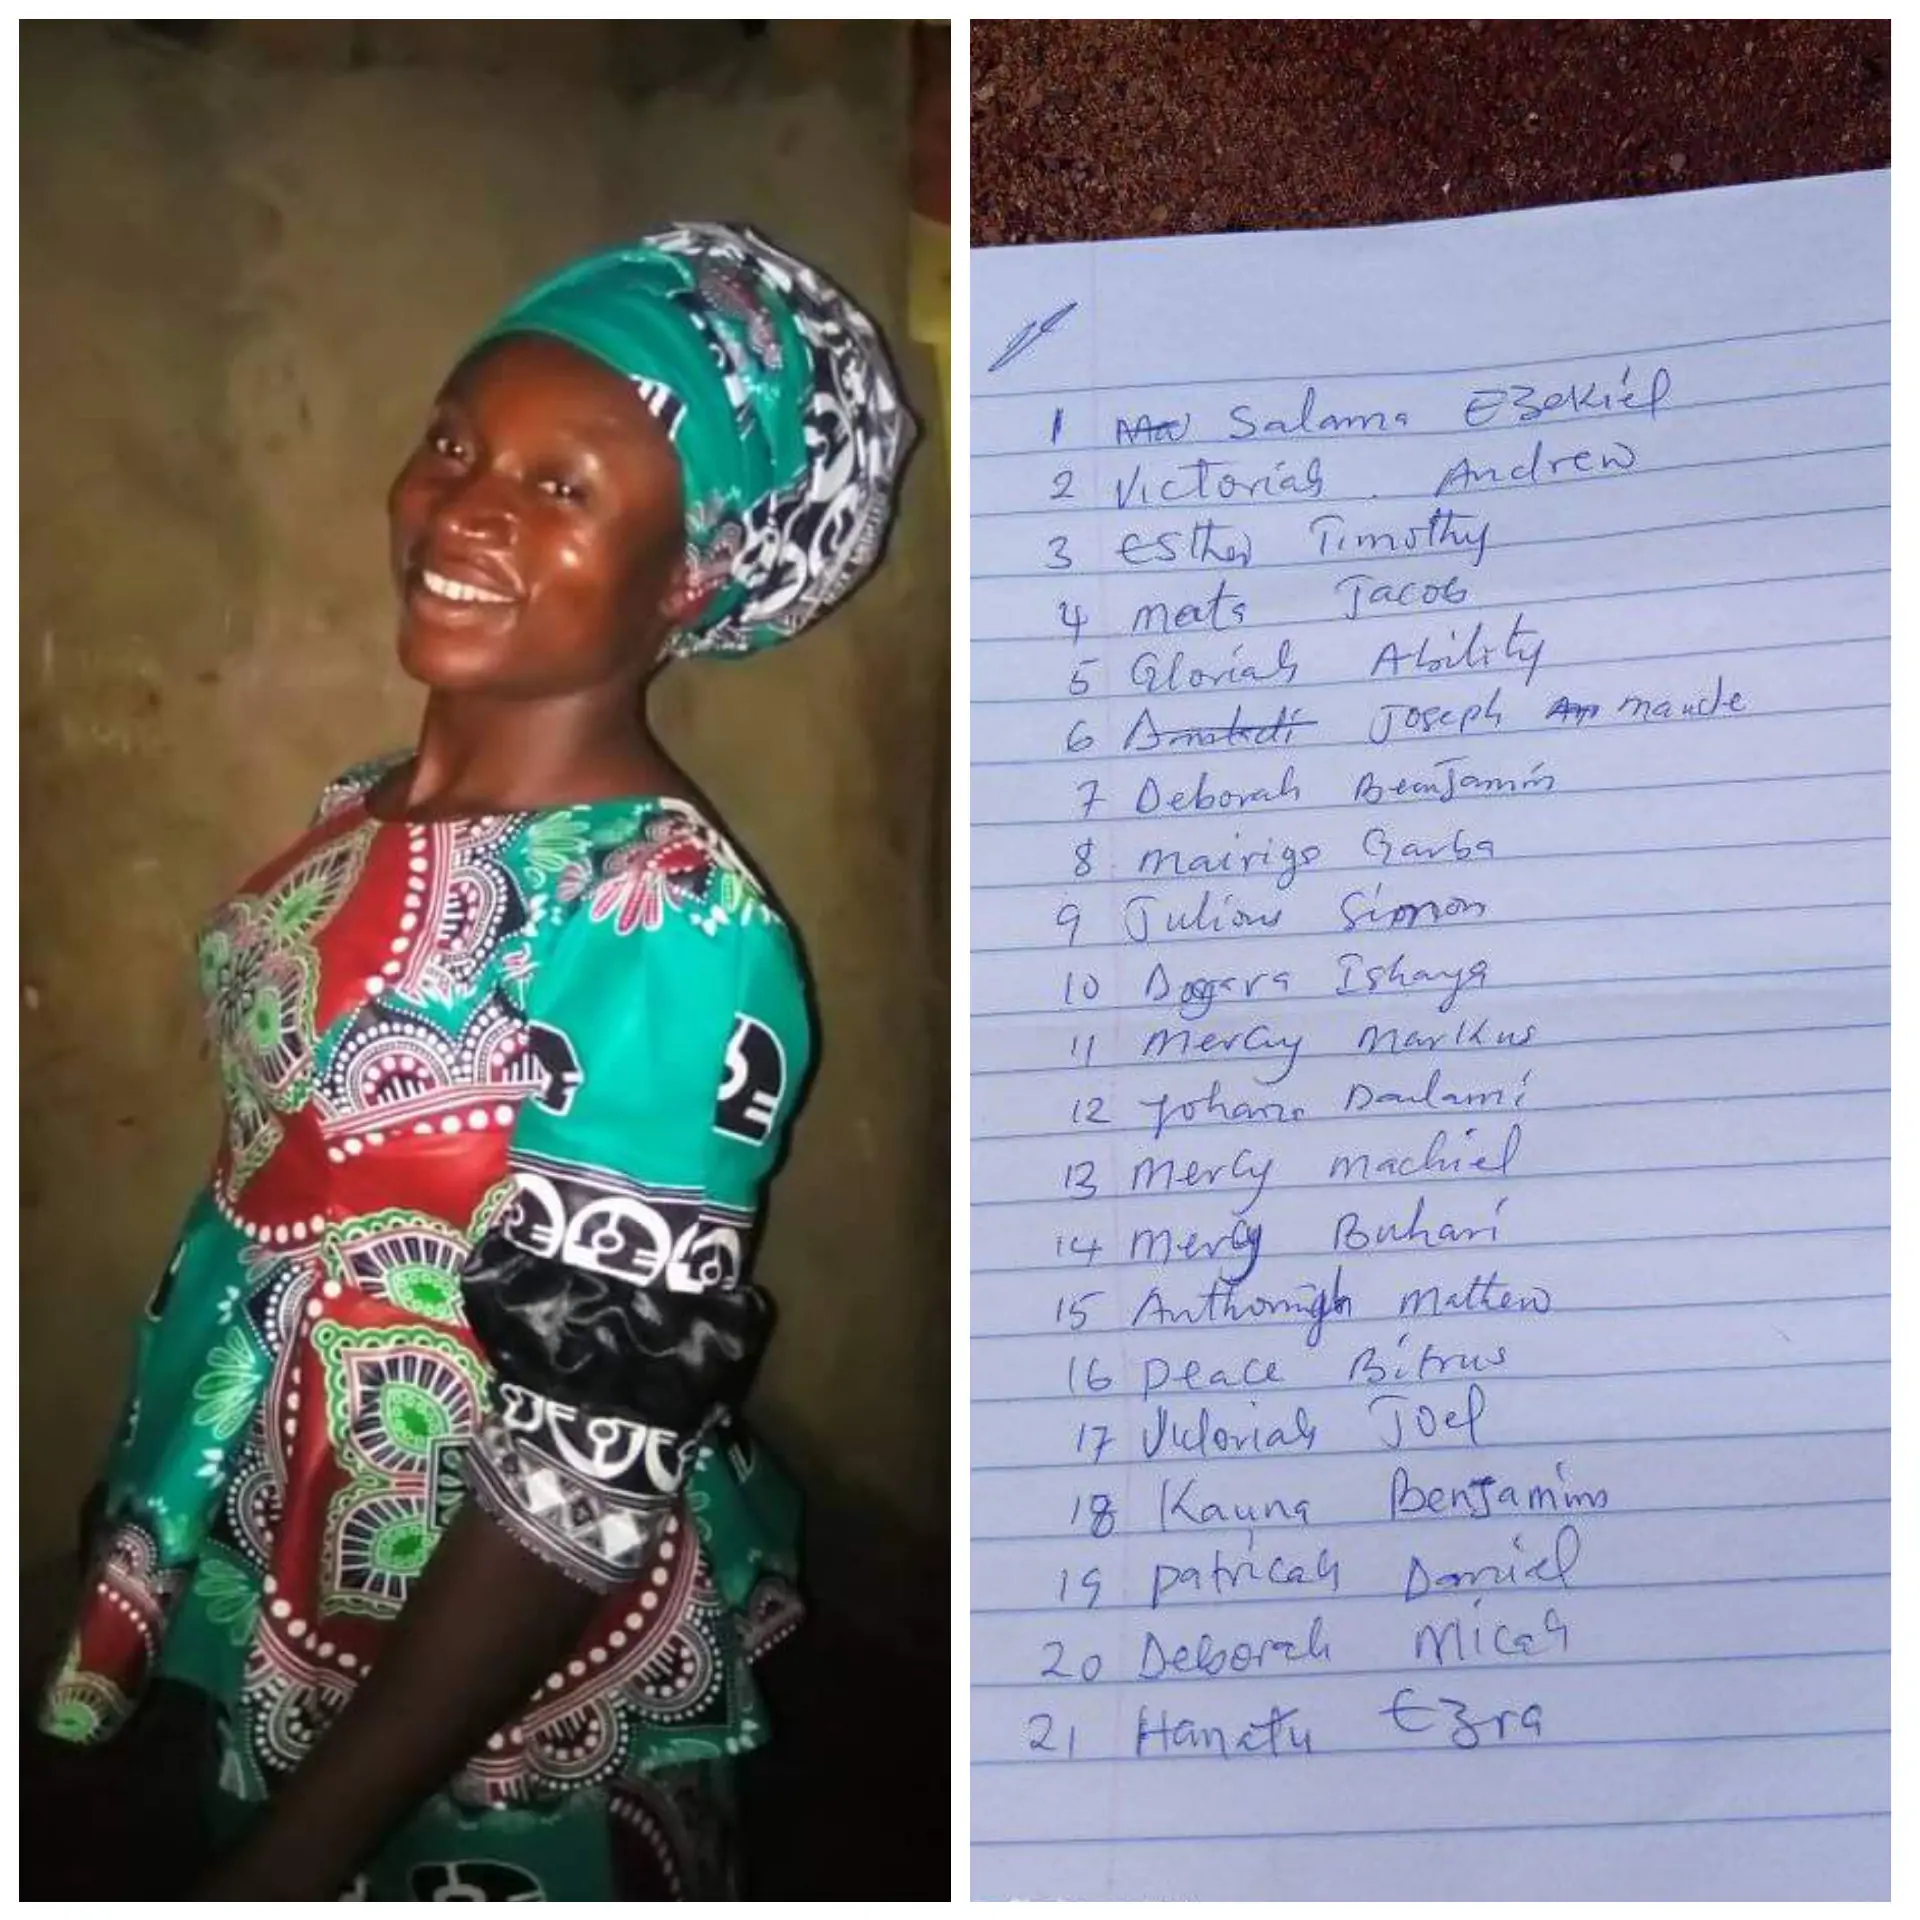 1 Salama Ezekiel
2 Victoriah Andrew
3 Esther Timothy
4 Jacob
5 Gloriah Ability
6 Joseph
7 Deborah Benjamin
8 Mairigo Garba
9 Julious Simon
10 Dogara Ishaya
11 Mercy Markus
12 Yohana
13 Mercy Machiel
14 Mercy Buhari
15 Mathew
16 Peace Bitrus
17 Victoriah Joel
18 Kauna Benjamin
19 Patricah Daniel
20 Deborah Micah
21 Hanatu Ezra